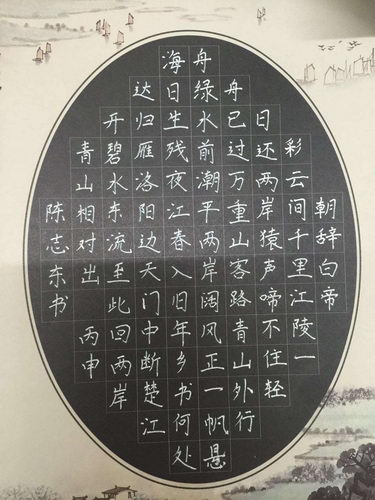 朝辞白帝
彩云间千里江陵一
日还两岸猿声啼不住轻
舟已过万重山客路青山外行
舟绿水前潮平两岸阔风正一帆悬
海日生残夜江春入旧年乡书何处
达归雁洛阳边天门中断楚江
开碧水东流至此回两岸
青山相对出丙申
陈志东书